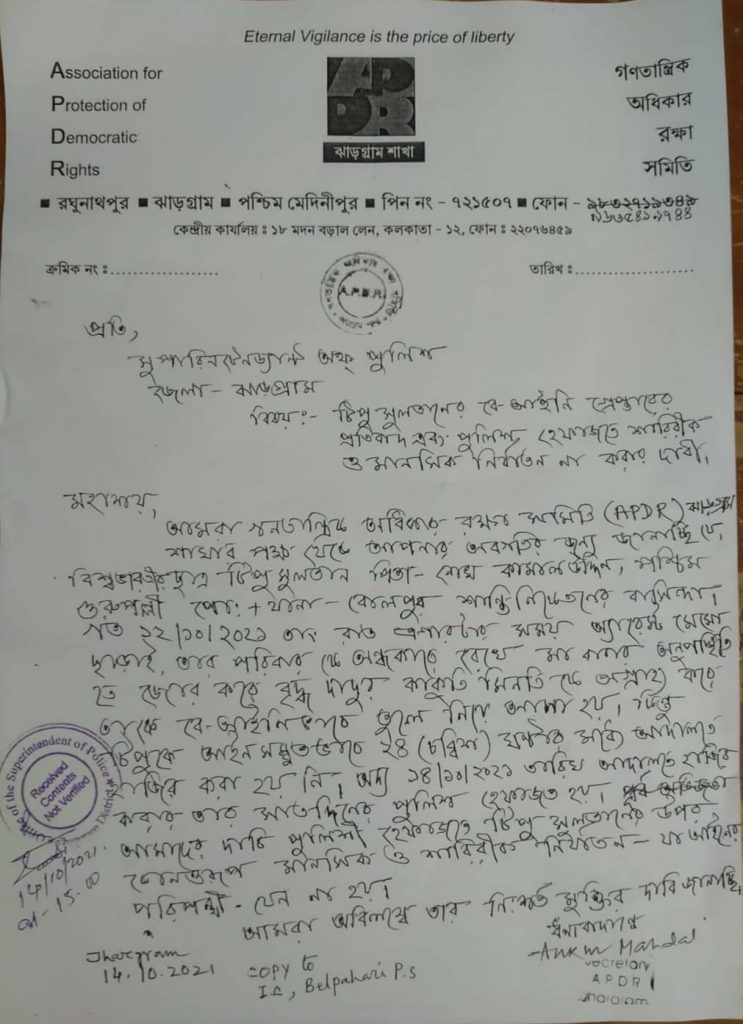 Eternal Vigilance is the price of liberty
Association for
Protection of
Democratic
Rights
APDR
ঝাড়গ্রাম শাখা
গণতান্ত্রিক
অধিকার
রক্ষা
সমিতি
■ রঘুনাথপুর ■ ঝাড়গ্রাম ■ পশ্চিম মেদিনীপুর ■ পিন নং - ৭২১৫০৭ ■ ফোন - ৯৮৩২৭১৯৩৪৯
কেন্দ্রীয় কার্যালয় : ১৮ মদন বড়াল লেন, কলকাতা - ১২, ফোন : ২২৩৭৬৪৫৯
ক্রমিক নং :
তারিখ :
A.P.D.R.
প্রতি,
সুপারিনটেনড্যান্ট অফ পুলিশ
জেলা - ঝাড়গ্রাম
বিষয়:- টিপু সুলতানের বে-আইনি গ্রেপ্তারের
প্রতিবাদ এবং পুলিশি হেফাজতে শারিরীক
ও মানসিক নির্যাতন না করার দাবী।
মহাশয়,
আমরা গনতান্ত্রিক অধিকার রক্ষা সমিতি (APDR) ঝাড়গ্রাম
শাখার পক্ষ থেকে আপনার অবগতির জন্য জানাচ্ছি যে,
বিশ্বভারতীর ছাত্র টিপু সুলতান পিতা - শেখ কামালউদ্দিন, পশ্চিম
গুরুপল্লী পোঃ + থানা - বোলপুর শান্তিনিকেতনের বাসিন্দা।
গত ১২/১০/২০২১ তাং রাত এগারটার সময় অ্যারেস্ট মেমো
ছাড়াই, তার পরিবার কে অন্ধকারে রেখে মা বাবার অনুপস্থিতি
তে জোর করে বৃদ্ধ দাদুর কাকুতি মিনতি কে অগ্রাহ্য করে
তাকে বে-আইনিভাবে তুলে নিয়ে আসা হয়। কিন্তু
টিপুকে আইন সম্মতভাবে ২৪ (চব্বিশ) ঘন্টার মধ্যে আদালতে
হাজির করা হয় নি। অদ্য ১৪/১০/২০২১ তারিখ আদালতে হাজির
করার তার সাতদিনের পুলিশ হেফাজত হয়।
আমাদের দাবি পুলিশী হেফাজতে টিপু সুলতানের উপর
কোনওরূপ মানসিক ও শারিরীক নির্যাতন - যা আইনের
পরিপন্থী - যেন না হয়।
আমরা অবিলম্বে তার নিঃশর্ত মুক্তির দাবি জানাচ্ছি
ধন্যবাদান্তে
Ankur Mandal
Secretary
APDR
Jhargram
Office of the Superintendent of Police
Received
Contents
Not Verified
14/10/2021
Jhargram
14.10.2021
COPY to
IC, Belpahari P.S